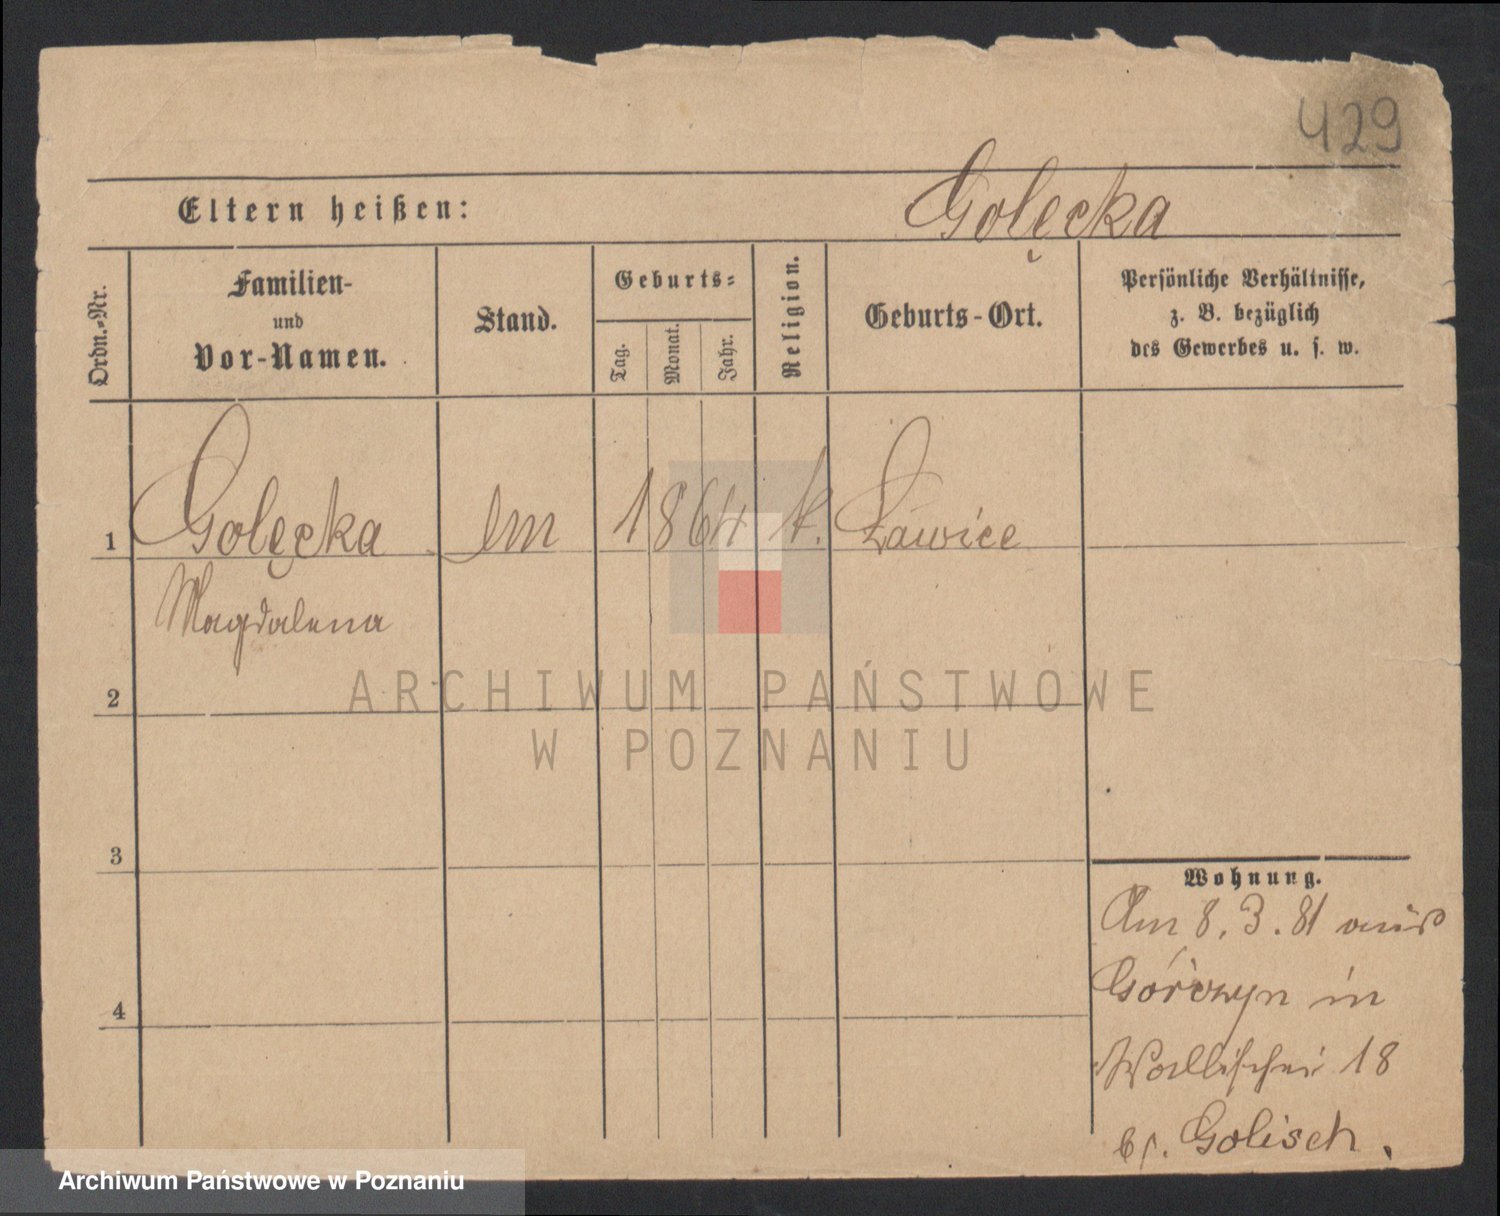 429
Eltern heißen: Golęcka
Ordn.-Nr.
Familien-
und
Vor-Namen.
Stand.
Geburts-
Tag.
Monat.
Jahr.
Religion.
Geburts-Ort.
Persönliche Verhältnisse,
z. B. bezüglich
des Gewerbes u. s. w.
1 Golęcka 1864 k. Ławice
Magdalena
2
3
4
Wohnung.
Am 8. 3. 81 aus
in
Wallischei 18
Golisch.
ARCHIWUM PAŃSTWOWE
W POZNANIU
Archiwum Państwowe w Poznaniu